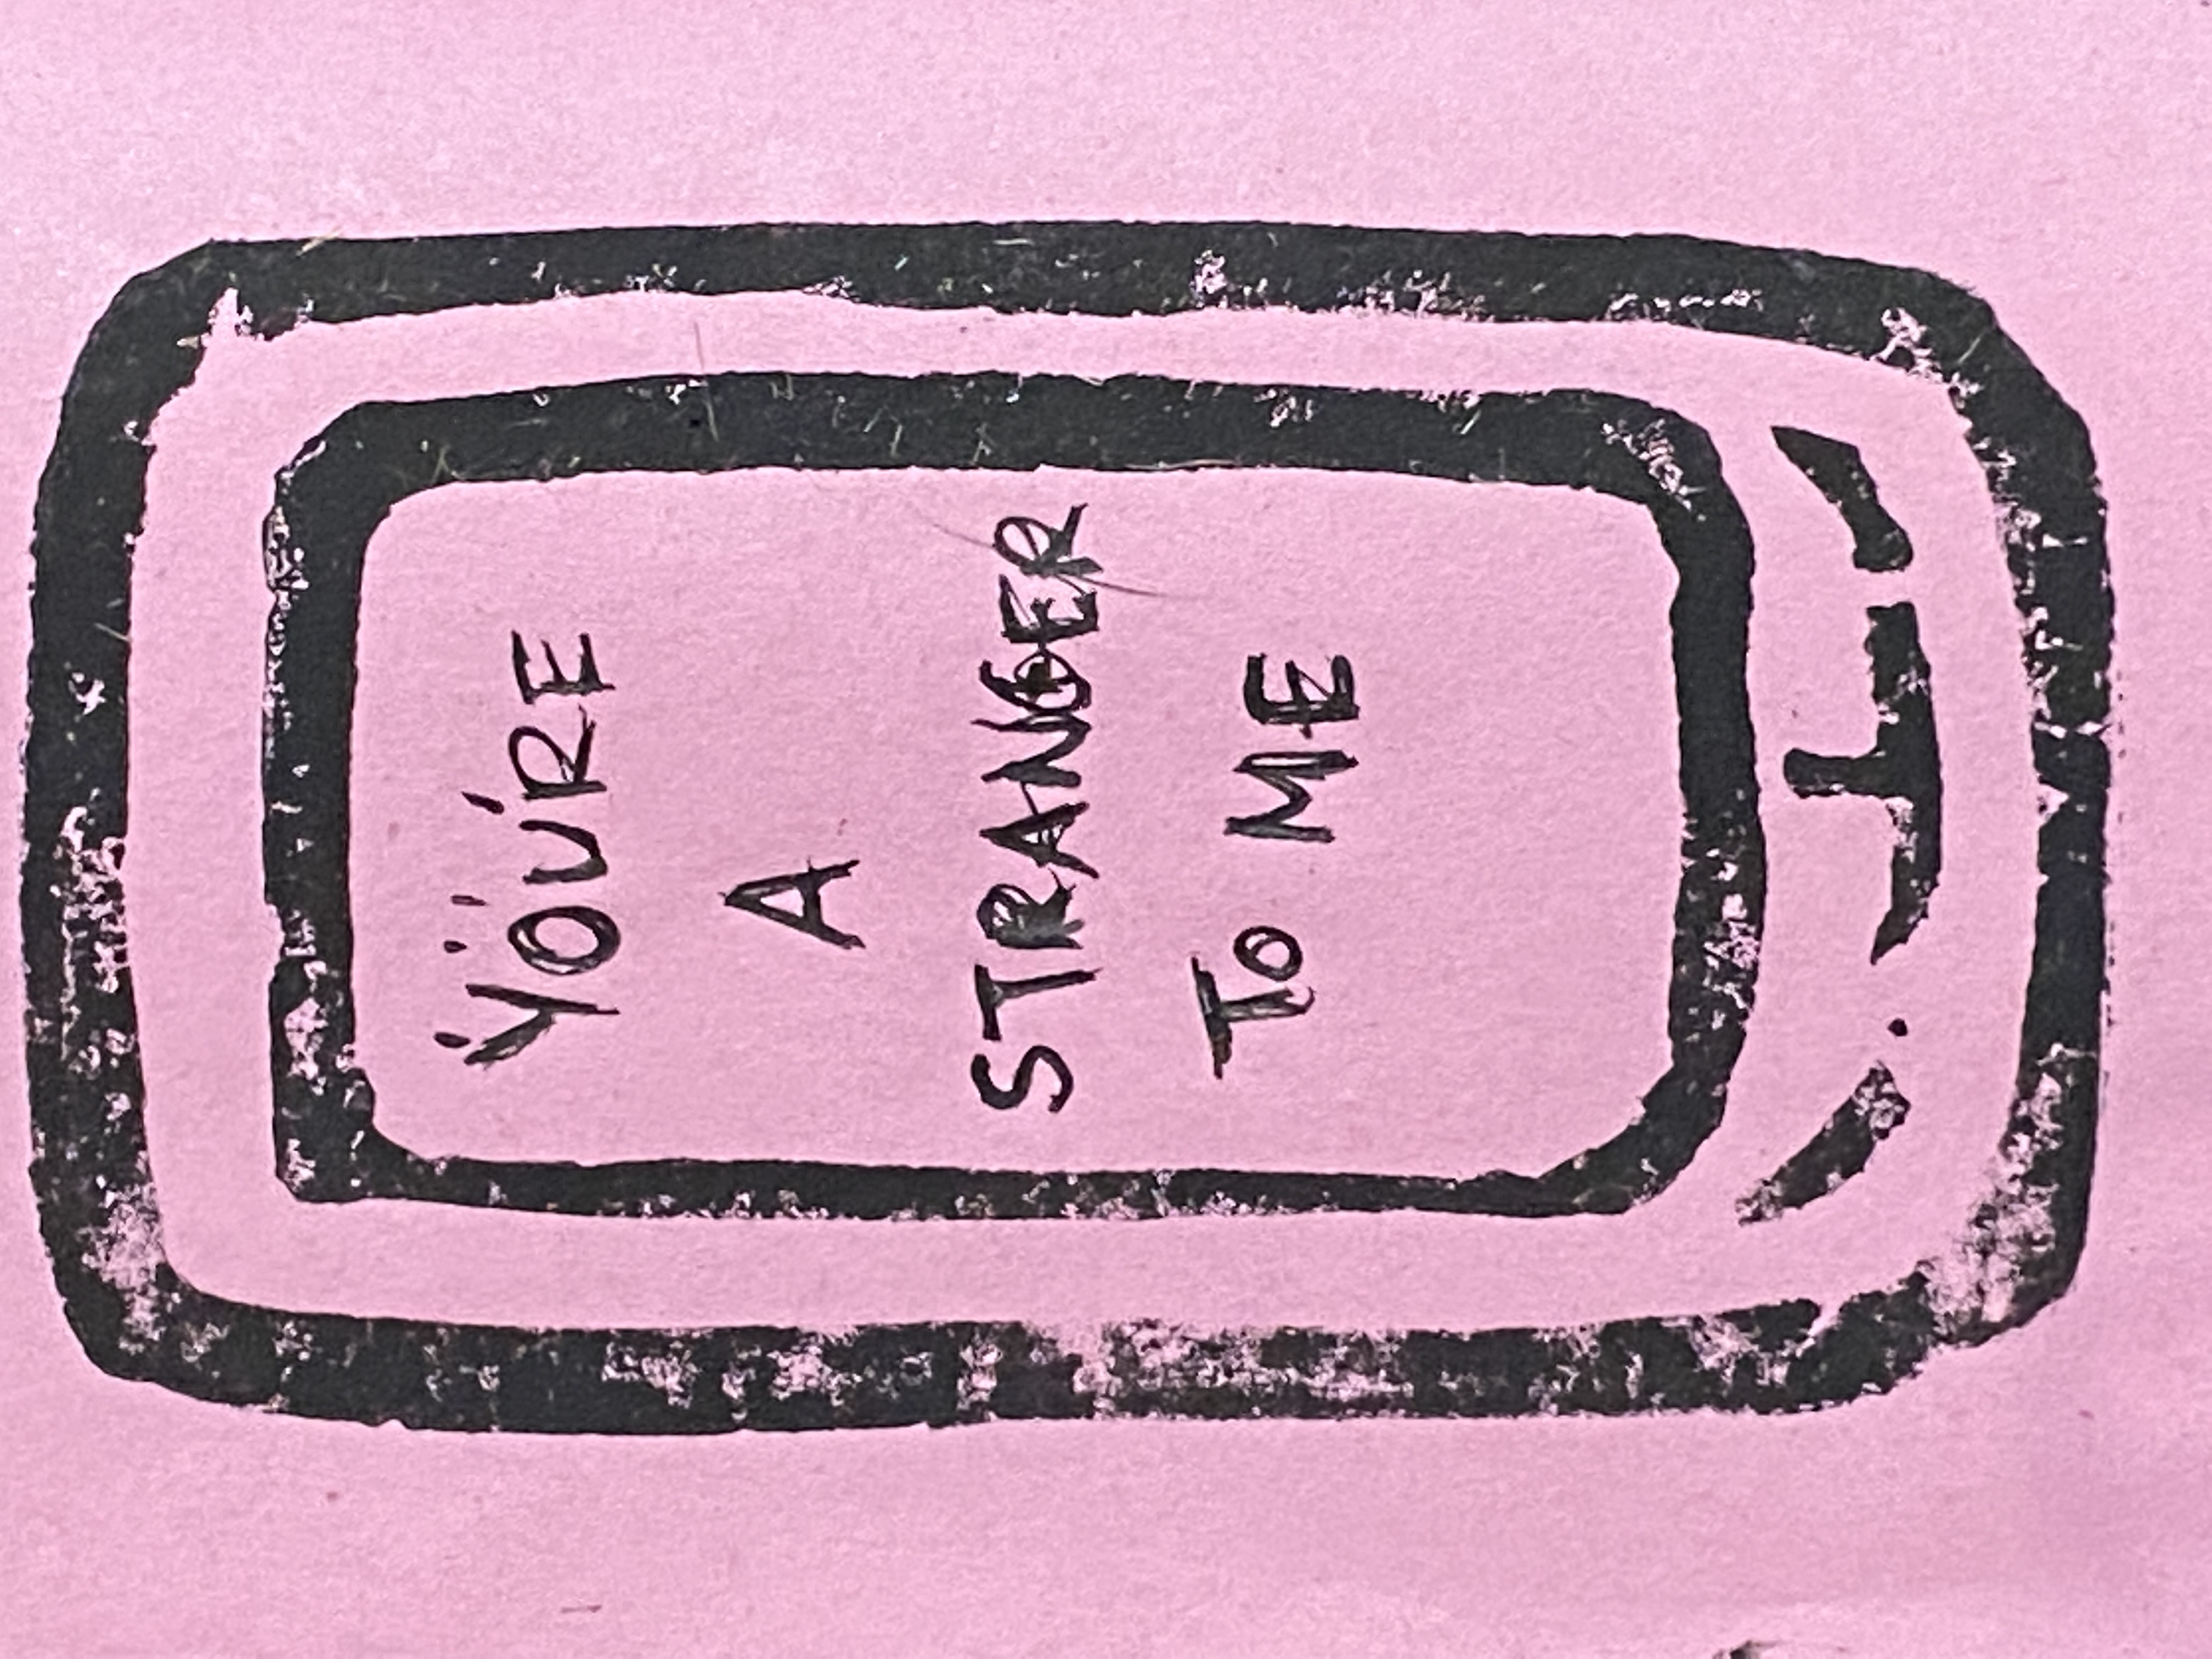 YOU'RE
A
STRANGER
TO ME